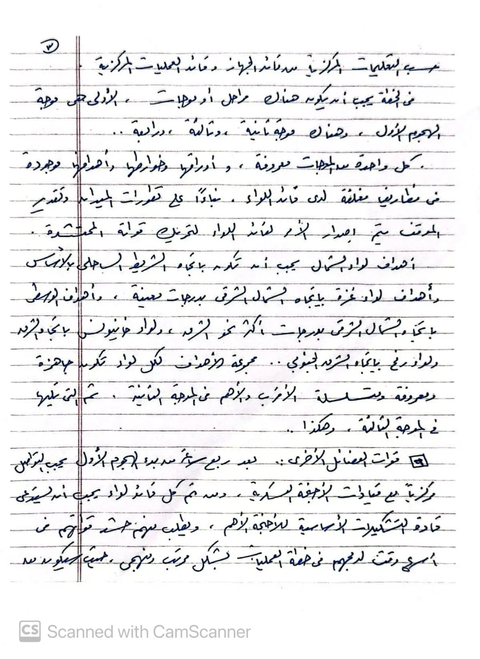 ٣
حسب التعليمات المركزية من قائد الجهاز وقائد العمليات المركزية .
في الخطة يجب أن يكون هناك مراحل أو موجات ، الأولى هي موجة
الهجوم الأول ، وهناك موجة ثانية ، وثالثة ، ورابعة ..
. كل واحدة من الموجات معروفة ، وأوراقها وخرائطها وأهدافها موجودة
في مظاريف مغلقة لدى قائد اللواء . بناءًا على تطورات الميدان وتقدير
الموقف يتم إصدار الأمر لقائد اللواء لتحريك قواته المحتشدة .
أهداف لواء الشمال يجب أن تكون باتجاه الشريط الساحلي بالأساس
وأهداف لواء غزة باتجاه الشمال الشرقي بدرجات معينة ، وأهداف الوسطى
باتجاه الشمال الشرقي بدرجات أكثر نحو الشرق ، ولواء خانيونس باتجاه الشرق
ولواء رفح باتجاه الشرق الجنوبي .. مجموعة الأهداف لكل لواء تكون جاهزة
ومعروفة ومتسلسلة الأقرب والأهم في الموجة الثانية . ثم التي تليها
في الموجة الثالثة ، وهكذا ..
قوات الفصائل الأخرى : بعد ربع ساعة من بدء الهجوم الأول يجب التواصل
مركزيًا مع قيادات الأجنحة العسكرية ، ومن ثم كل قائد لواء يجب أن يستدعي
قادة التشكيلات الأساسية للأجنحة الأهم ، ويطلب منهم حشد قواتهم في
أسرع وقت لدمجهم في خطة العمليات بشكل مرتب ومنهجي ، سيكون من
CS Scanned with CamScanner